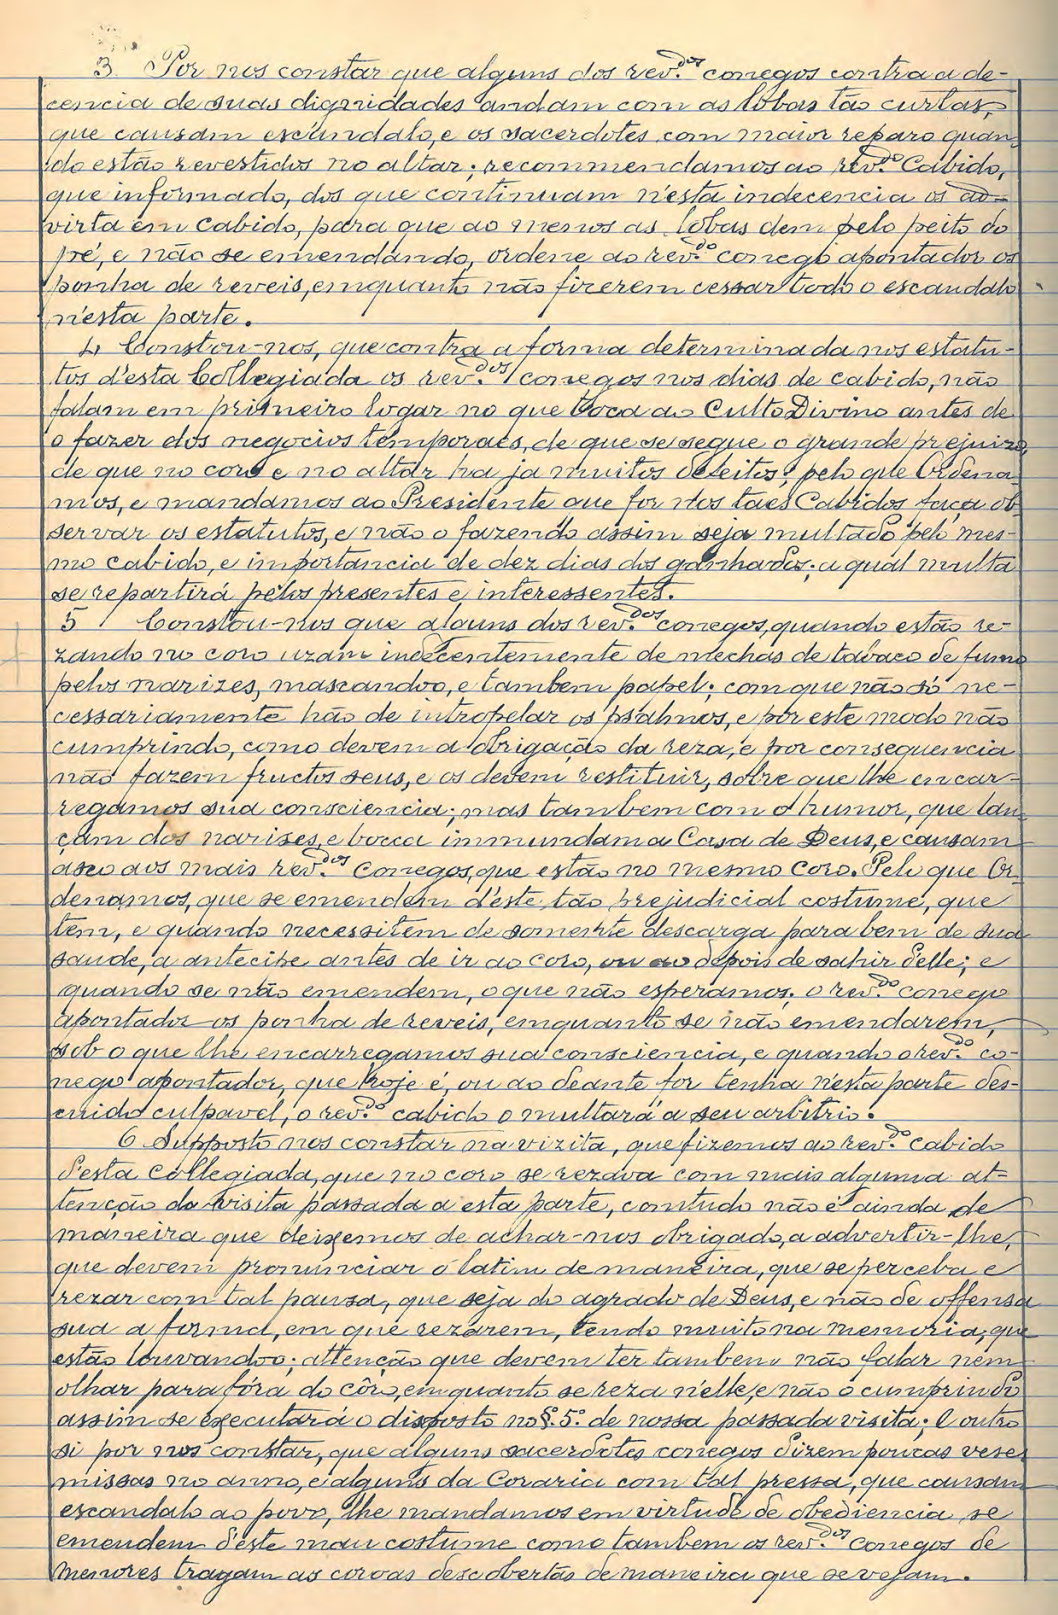 3. Por nos constar que alguns dos rev.dos conegos contra a de-
cencia de suas dignidades andam com as lobas tão curtas,
que causam escandalo, e os sacerdotes com maior reparo quan-
do estão revestidos no altar; recommendamos ao rev.do Cabido,
que informado, dos que continuam n'esta indecencia os ad-
virta em Cabido, para que ao menos as lobas dem pelo peito do
pé, e não se emendando, ordene ao rev.do conego apontador os
ponha de reveis, emquanto não fizerem cessar todo o escandalo
n'esta parte.
4 Constou-nos, que contra a forma determinada nos estatu-
tos d'esta Collegiada os rev.dos conegos nos dias de cabido, não
falam em primeiro logar no que toca ao Culto Divino antes de
o fazer dos negocios temporaes, de que se segue o grande prejuizo
de que no coro e no altar ha ja muitos defeitos; pelo que Ordena-
mos, e mandamos ao Presidente que for dos taes Cabidos faça ob-
servar os estatutos, e não o fazendo assim seja multado pelo mes-
mo cabido, e importancia de dez dias dos ganhados; a qual multa
se repartirá pelos presentes e interessentes.
5 Constou-nos que alguns dos rev.dos conegos, quando estão re-
zando no coro uzam indecentemente de mechas de tabaco de fumo
pelos narizes, mascando-o, e tambem papel; com que não só ne-
cessariamente hão de intropelar os psalmos, e por este modo não
cumprindo, como devem a obrigação da reza, e por consequencia
não fazem fructos seus, e os devem restituir, sobre que lhe encar-
regamos sua consciencia; mas tambem com o humor, que lan-
çam dos narises, e bocca immundam a Casa de Deus, e causam
asco aos mais rev.dos Conegos, que estão no mesmo coro. Pelo que Or-
denamos, que se emendem d'este tão prejudicial costume, que
tem, e quando necessitem de somente descarga para bem de sua
saude, a antecipe antes de ir ao coro, ou ao depois de sahir d'elle; e
quando se não emendem, o que não esperamos; o rev.do conego
apontador os ponha de reveis, emquanto se não emendarem,
sob o que lhe encarregamos sua consciencia, e quando o rev.do co-
nego apontador, que hoje é, ou ao deante for tenha n'esta parte des-
cuido culpavel, o rev.do cabido o multará a seu arbitrio.
6 Supposto nos constar na vizita, que fizemos ao rev.do cabido
d'esta Collegiada, que no coro se rezava com mais alguma at-
tenção da visita passada a esta parte, comtudo não é ainda de
maneira que deixemos de achar-nos obrigado, a advertir-lhe,
que devem pronunciar o latim de maneira, que se perceba e
rezar com tal pausa, que seja do agrado de Deus, e não de offensa
sua a forma, em que rezarem, tendo muito na memoria, que
estão louvando-o; attenção que devem ter tambem não falar nem
olhar para fóra do côro, emquanto se reza n'elle, e não o cumprindo
assim se executará o disposto no §. 5.º de nossa passada visita; e outro
si por nos constar, que alguns sacerdotes conegos dizem poucas vezes
missas no anno, e alguns da Coraria com tal pressa, que causam
escandalo ao povo, lhe mandamos em virtude de obediencia se
emendem d'este mau costume como tambem os rev.dos Conegos de
menores tragam as coroas descobertas de maneira que se vejam.